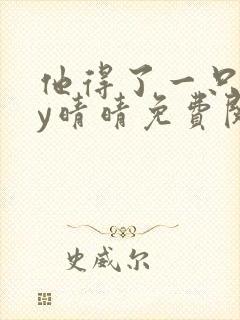 他得了一只
y晴晴免费阅
史威尔